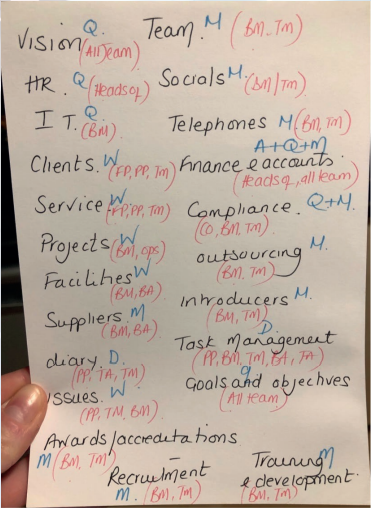 Vision Q. Team. M (BM, TM)
(All Team)
HR. Q (Heads of) Socials M. (BM/TM)
I T. Q
(BM)
Telephones M (BM, TM)
Clients. W
(FP, PP, TM)
A+Q+M
Finance & accounts.
(Heads of, all team)
Service W
(FP, PP, TM)
Compliance. Q+M.
(CO, BM, TM)
Projects W
(BM, ops)
outsourcing M.
(BM, TM)
Facilities W
(BM, BA)
Introducers M.
(BM, TM)
Suppliers. M
(BM, BA)
D.
Task Management
(PP, BM, TM, BA, TA)
diary D.
(PP, TA, TM)
q
Goals and objectives
(All team)
issues. W
(PP, TM, BM)
Awards/accreditations
M (BM, TM)
Recruitment
M. (BM, TM)
Training M
& development.
(BM, TM)